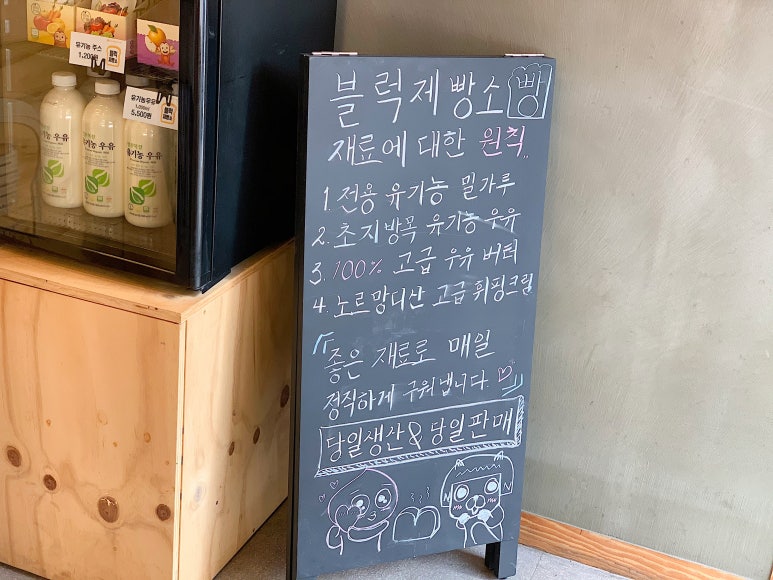 유기농 주스
1,200원
유기농우유
5,500원
유기농 우유
블럭제빵소 빵
재료에 대한 원칙..
1. 전용 유기농 밀가루
2. 초지방목 유기농 우유
3. 100% 고급 우유 버터
4. 노르망디산 고급 휘핑크림
좋은 재료로 매일
정직하게 구워냅니다.
당일생산 & 당일판매